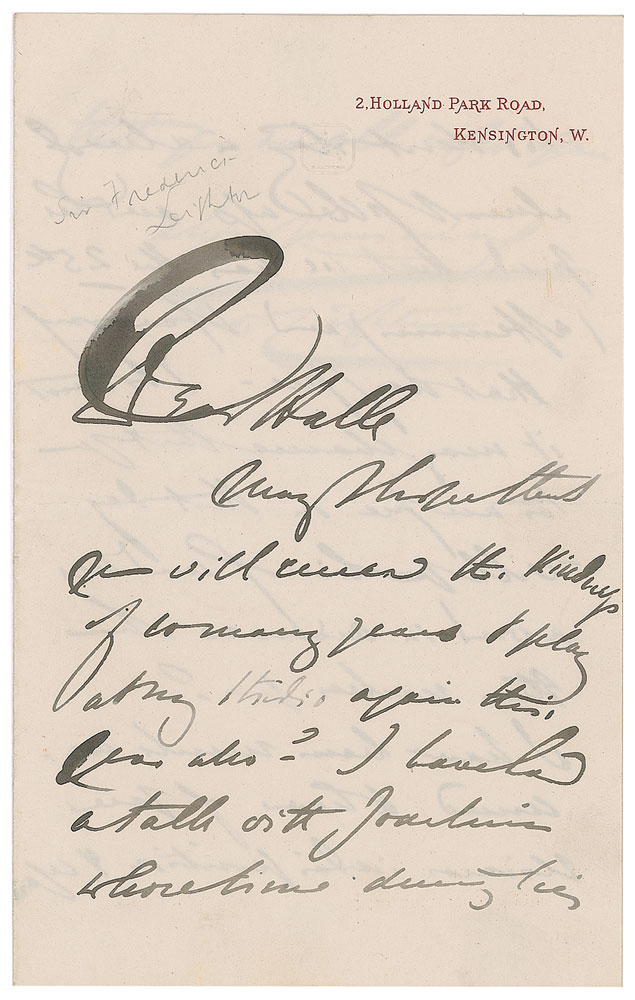 2, HOLLAND PARK ROAD,
KENSINGTON, W.
Sir Frederick
Leighton
Dear Hallé
May I hope that
you will renew the kindness
of so many years & play
at my Studio again this
year also? I have had
a talk with Joachim
whose time during his